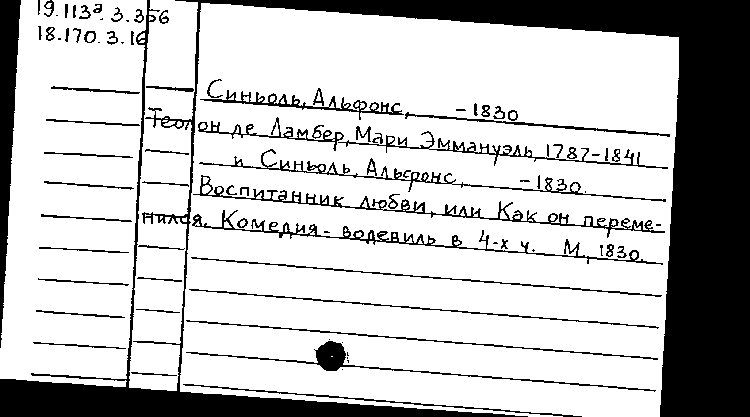 19.113ª.3.356
18.170.3.16
Синьоль, Альфонс, -1830
Теолон де Ламбер, Мари Эммануэль, 1787-1841
и Синьоль, Альфонс, -1830.
Воспитанник любви, или Как он переме-
нился. Комедия-водевиль в 4-х ч. М., 1830.